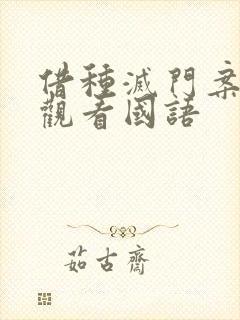 借種滅門案
觀看國語
茹古齋